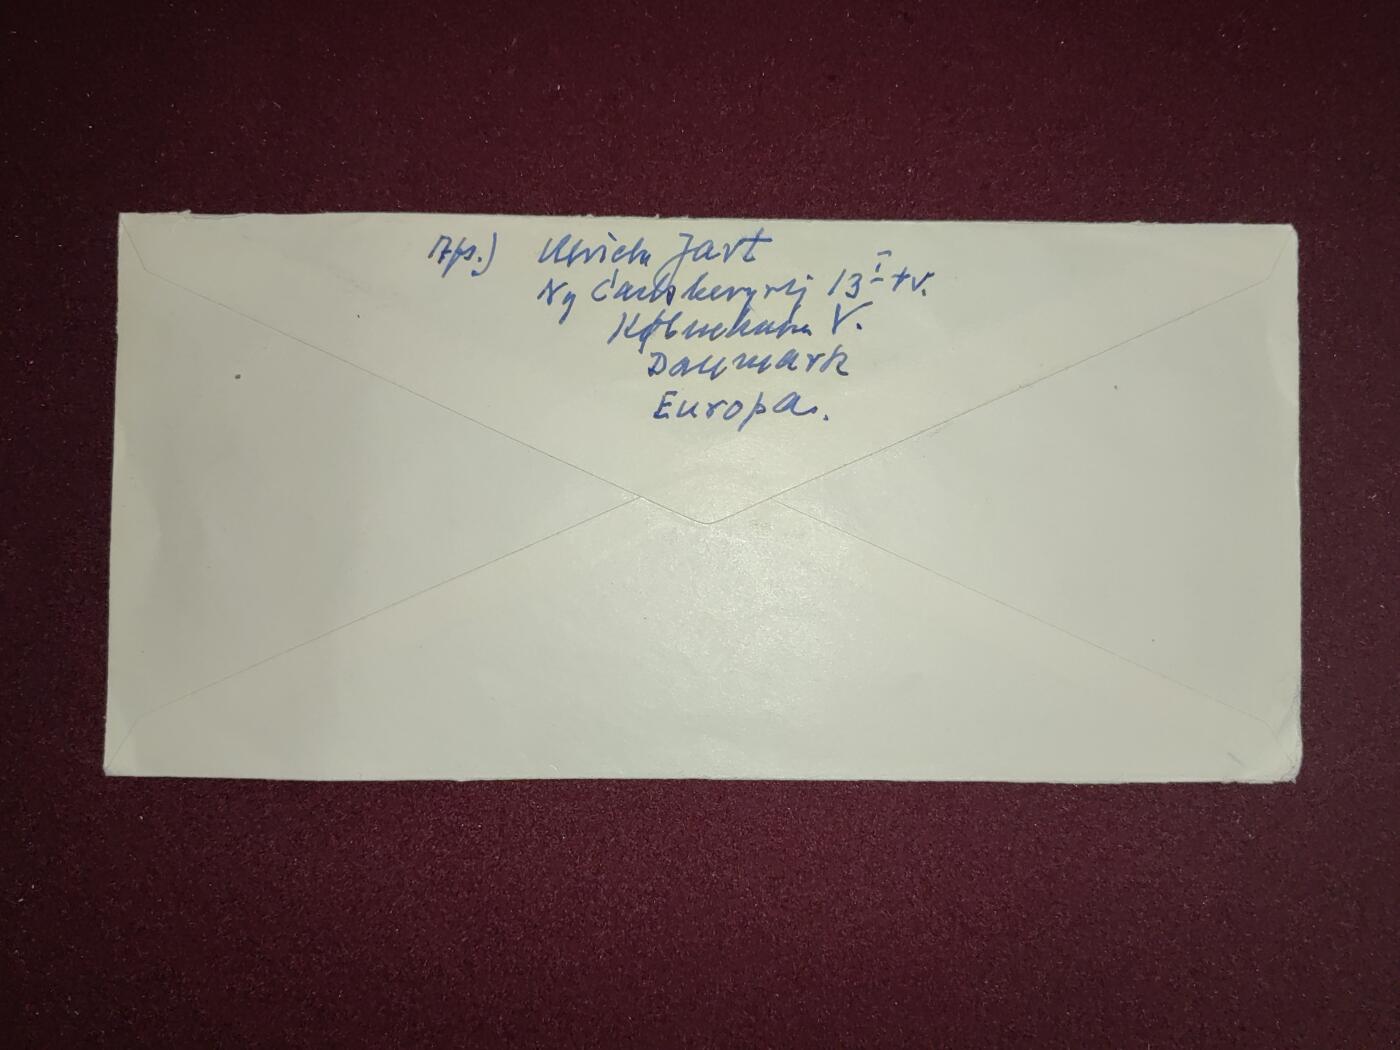 Afs.) Ulrich Jart
Ny Carlsbergvej 13 I tv.
København V.
Danmark
Europa.